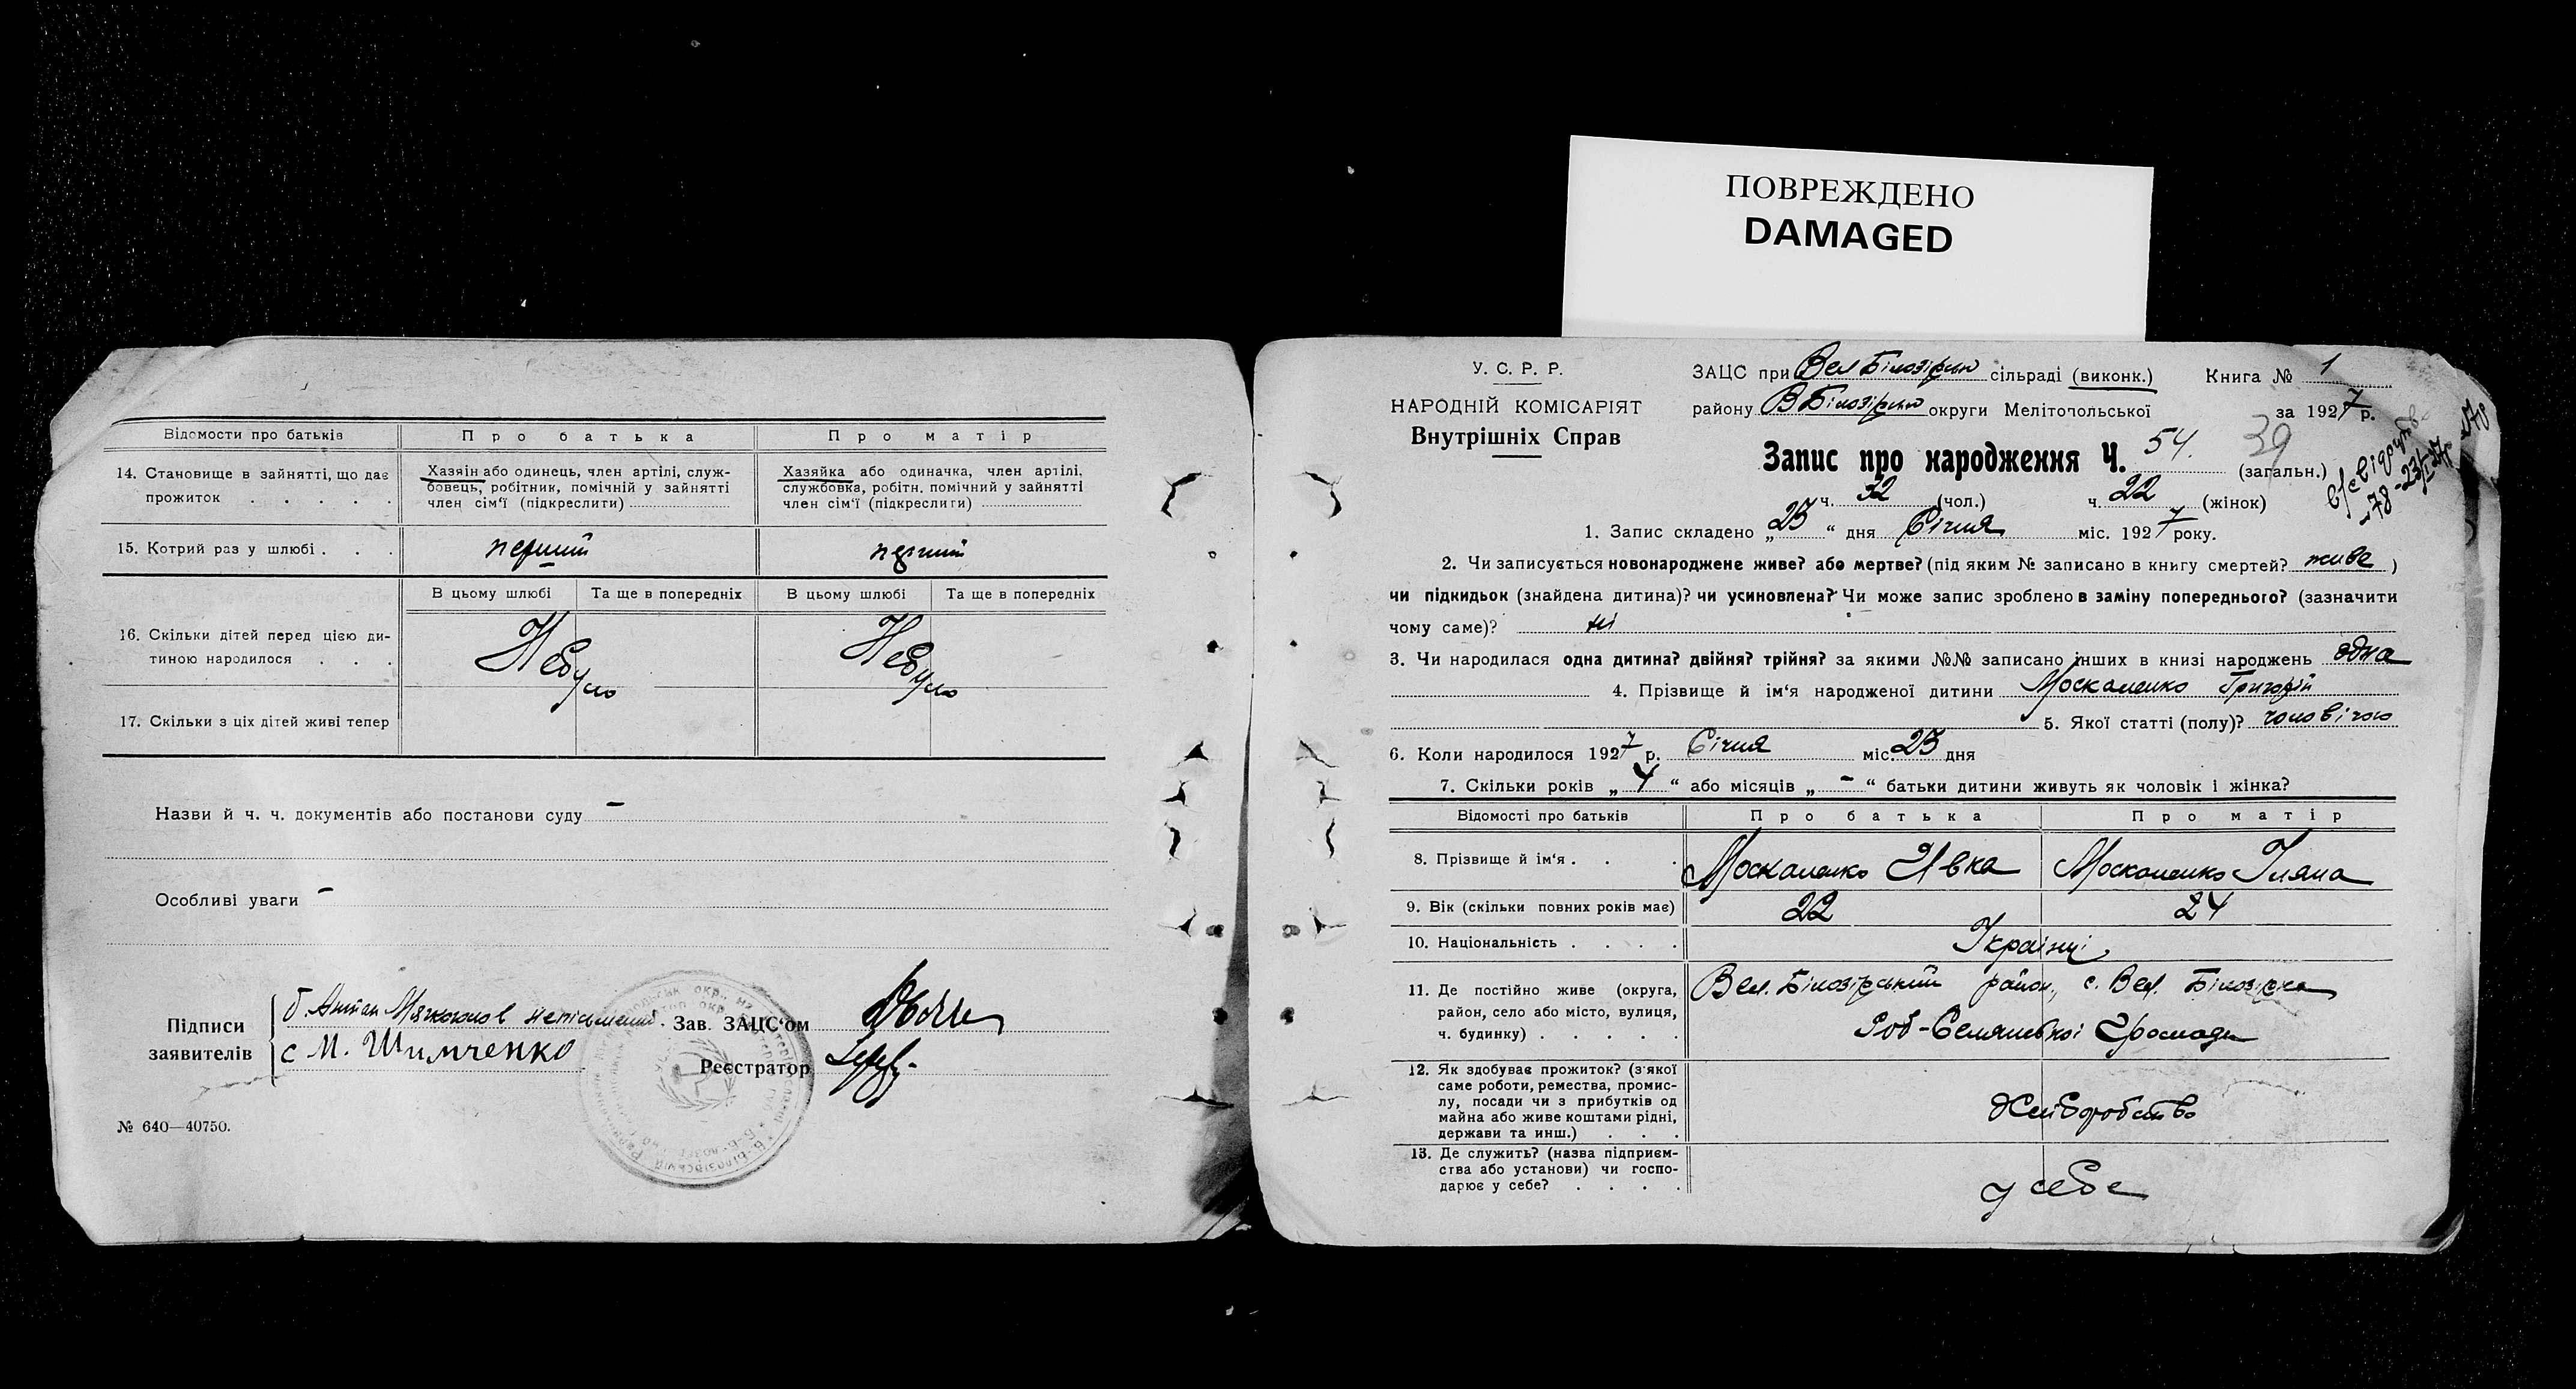 ПОВРЕЖДЕНО
DAMAGED
Відомости про батьків
Про батька
Про матір
14. Становище в зайнятті, що дає прожиток . . . . .
Хазяін або одинець, член артілі, служ-
бовець, робітник, помічній у зайнятті
член сім'ї (підкреслити)
Хазяйка або одиначка, член артілі,
службовка, робітн. помічний у зайнятті
член сім'ї (підкреслити)
15. Котрий раз у шлюбі . . .
перший
перший
В цьому шлюбі
Та ще в попередніх
В цьому шлюбі
Та ще в попередніх
16. Скільки дітей перед цією ди-
тиною народилося . . .
Небуло
Небуло
17. Скільки з ціх дітей живі тепер
Назви й ч. ч. документів або постанови суду –
Особливі уваги –
Підписи
заявителів
б. Антон неписьмений.
с М. Шимченко
Зав. ЗАЦС'ом
Реєстратор
№ 640—40750.
У. С. Р. Р.
НАРОДНІЙ КОМІСАРІЯТ
Внутрішніх Справ
ЗАЦС при Вел Білозірськ сільраді (виконк.)
Книга № 1
району ВБілозірськ округи Мелітопольської
за 1927 р.
Запис про народження Ч. 54. (загальн.)
39
ч. 32 (чол.) ч. 22 (жінок)
1. Запис складено „25" дня Січня міс. 1927 року.
2. Чи записується новонароджене живе? або мертве? (під яким № записано в книгу смертей? живе )
чи підкидьок (знайдена дитина)? чи усиновлена? Чи може запис зроблено в заміну попереднього? (зазначити
чому саме)? ні
3. Чи народилася одна дитина? двійня? трійня? за якими №№ записано інших в книзі народжень одна
4. Прізвище й ім'я народженої дитини Москаленко Григорій
5. Якої статті (полу)? чоловічою
6. Коли народилося 1927 р. Січня міс. 25 дня
7. Скільки років „ 4 " або місяців „ – " батьки дитини живуть як чоловік і жінка?
Відомості про батьків
Про батька
Про матір
8. Прізвище й ім'я . . .
Москаленко Ивка
Москаленко Уляна
9. Вік (скільки повних років має)
22
24
10. Національність . . . .
Українці
11. Де постійно живе (округа,
район, село або місто, вулиця,
ч. будинку) . . . . .
Вел. Білозірський район, с. Вел. Білозірка
Роб-Селянської Громади
12. Як здобуває прожиток? (з якої
саме роботи, ремества, промис-
лу, посади чи з прибутків од
майна або живе коштами рідні,
держави та инш.) . . .
Хліборобство
13. Де служить? (назва підприєм-
ства або установи) чи госпо-
дарює у себе? . . . .
у себе